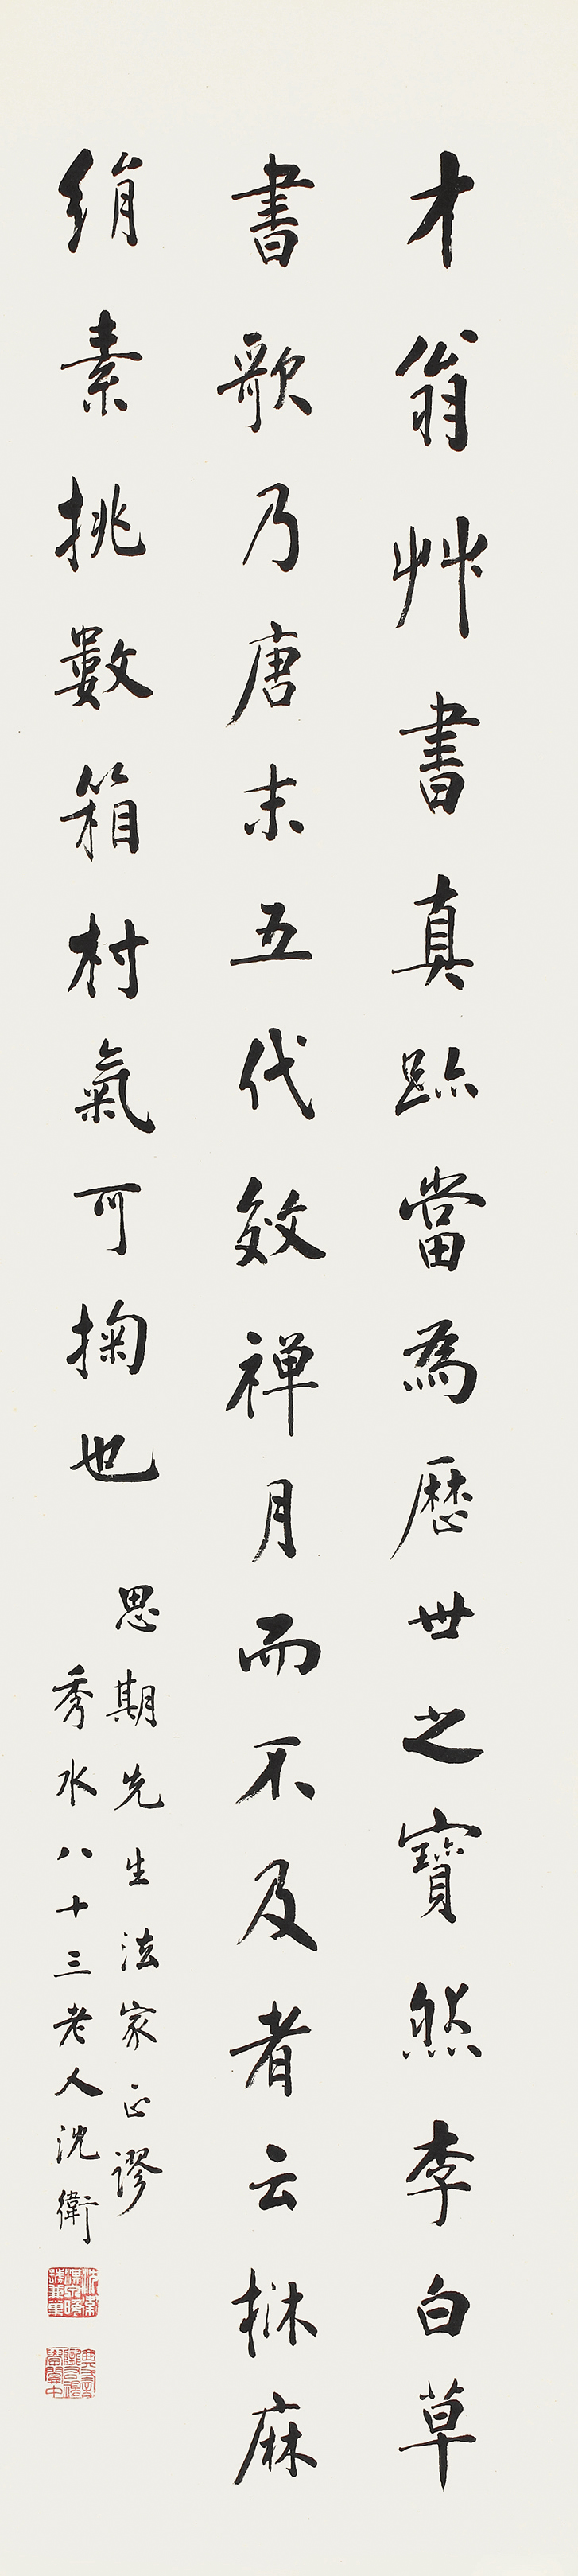 才翁艸書真跡當為歷世之寶然李白草
書歌乃唐末五代效禪月而不及者云牀麻
絹素排數箱村氣可掬也
思期先生法家正謬
秀水八十三老人沈衛